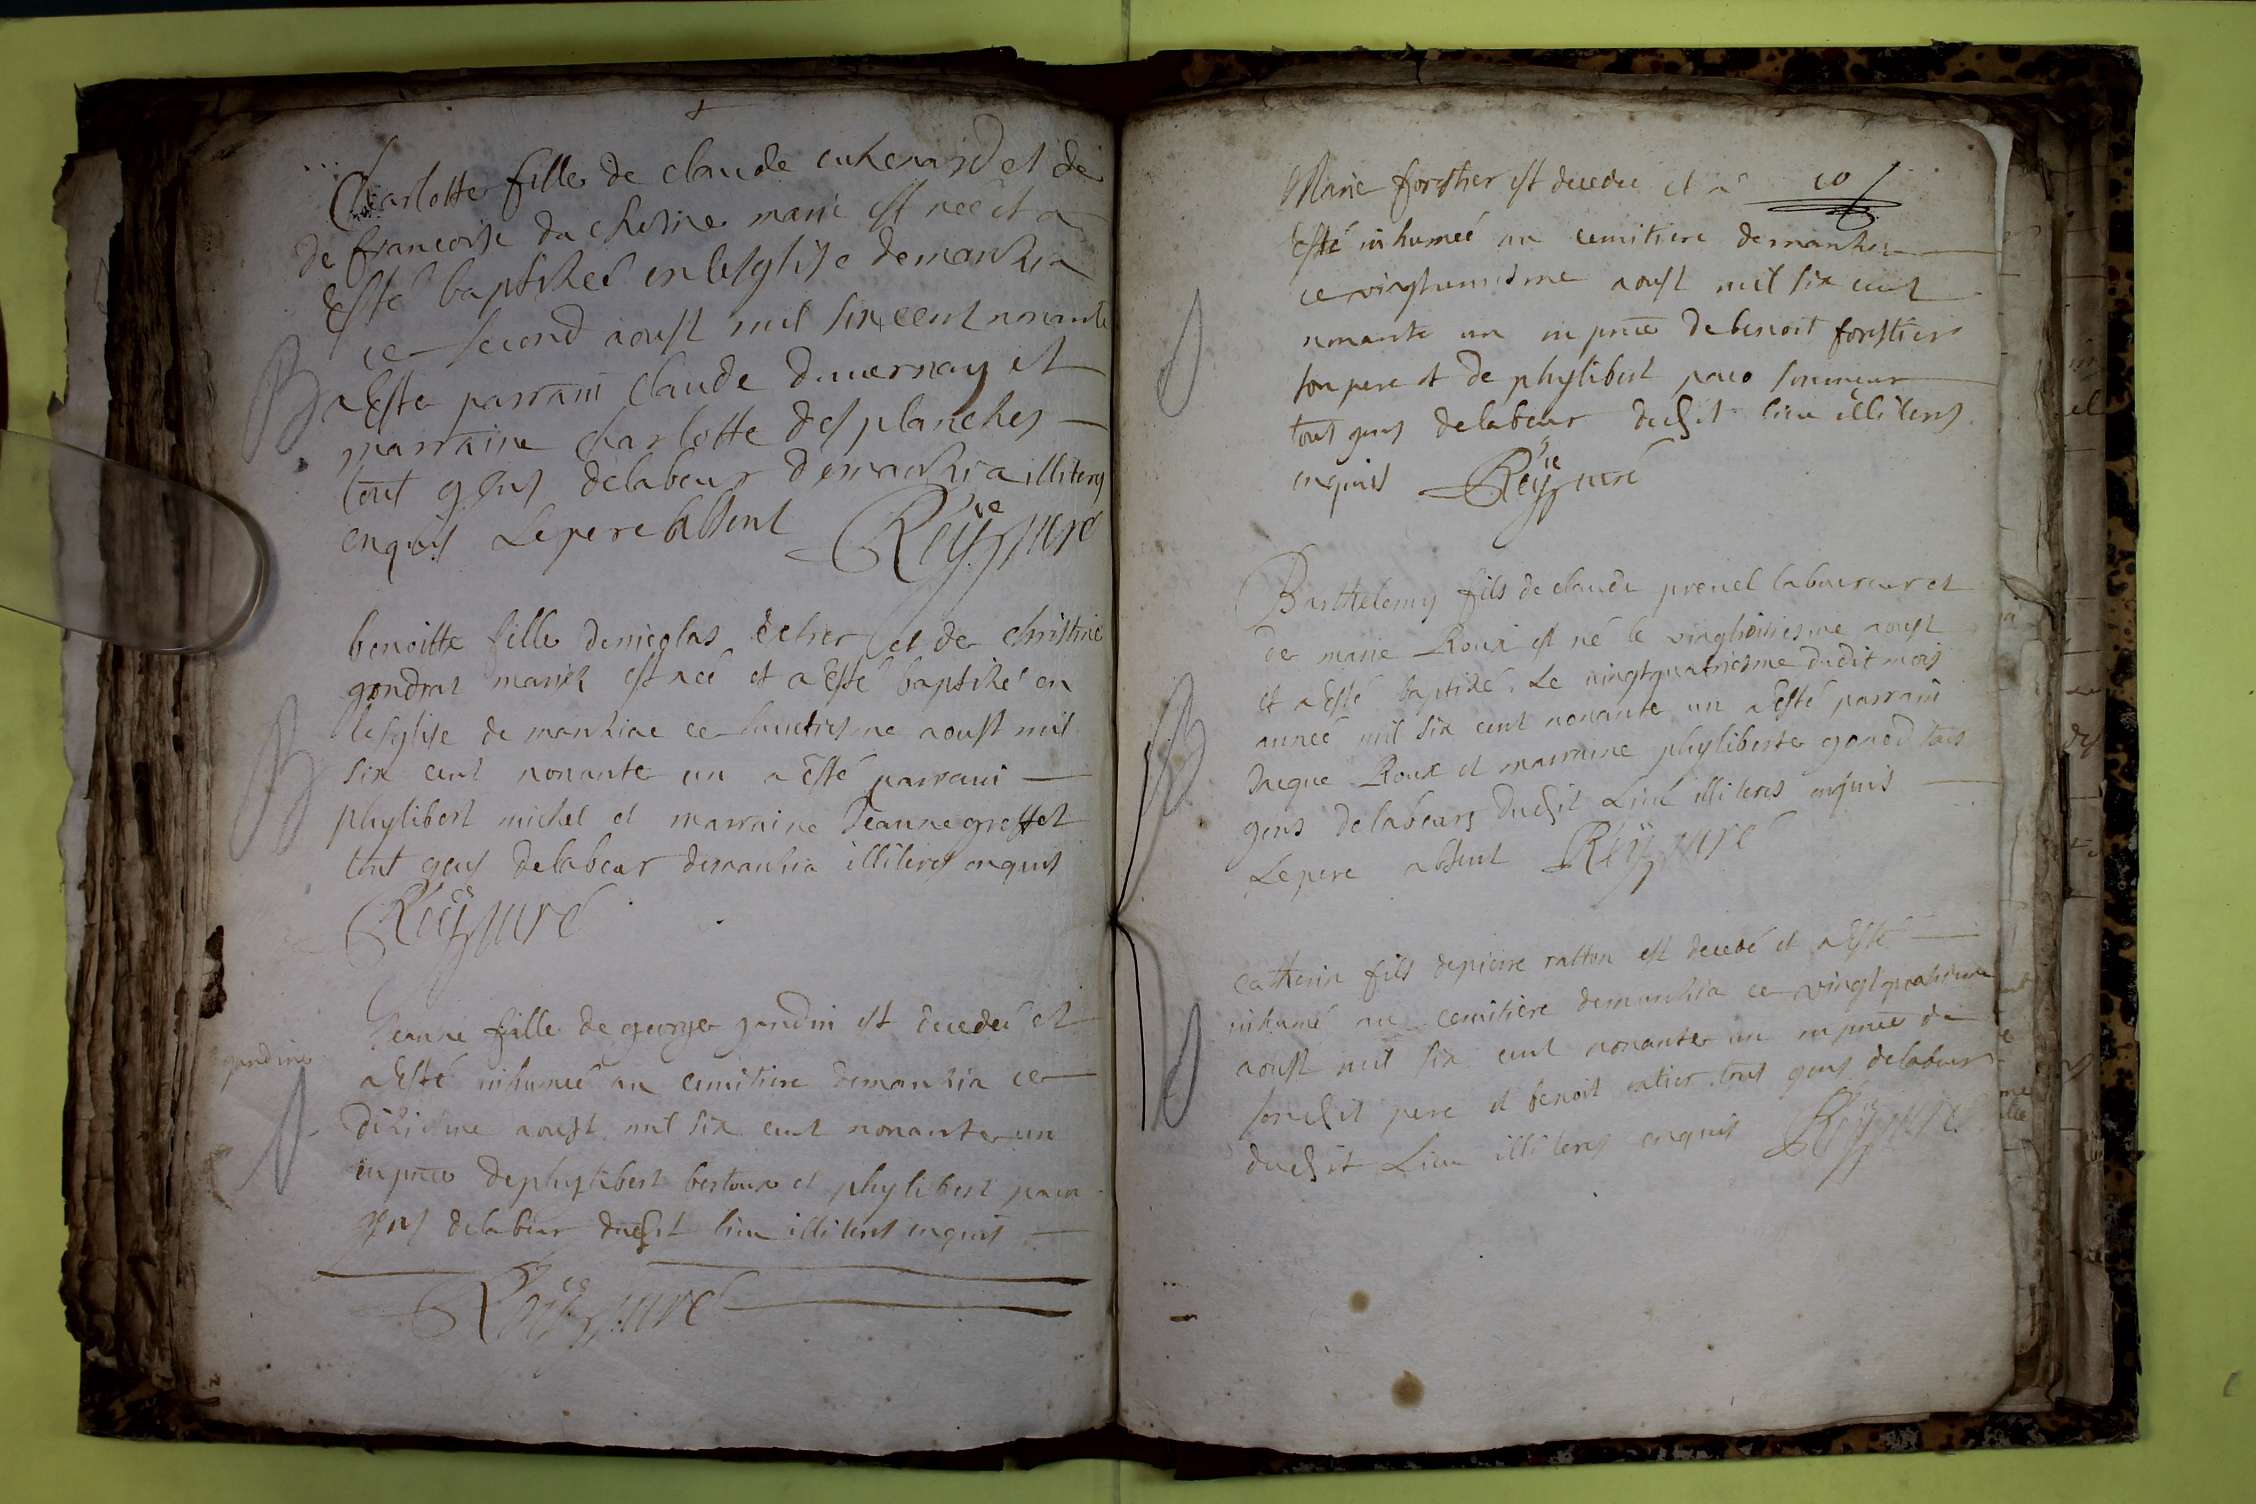 Charlotte fille de claude et de
de francoise du chesne marié est neé et a
esté baptiseé en lesglise demanhia
ce second aoust mil six cent nonante
a Este parrain claude duuernay et
marraine charlotte des planches
tout gens delabeur demanhia illiteres
enquis Lepere absent Reÿ curé
benoitte fille denicolas et de christine
gondrat mariés est neé et a Esté baptisé en
lesglise de manhiae ce huictiesme aoust mil
six cent nonante un a esté parrain
phylibert michel et marraine Jeanne greffet
tout gens delabeur demanhia illiteres enquis
Reÿ curé
Jeanne fille de george gondin est decedeé et
gondine
a Esté inhumeé au cemitiere demanhia ce
diziesme aoust mil six cent nonante un
en pnce dephylibert bertoux et phylibert
gens delabeur dudit lieu illiteres enquis
Reÿ curé
Marie forsthier est decedeé et a 10
Esté inhumeé au cemitiere demanhia
ce aoust mil six cent
nonante un en pnce debenoit forstier
son pere et de phylibert
tout gens delabeur dudit lieu illiteres
enquis Reÿ curé
Barthelemy fils de claude prenel laboureur et
de marie Roux est né le aoust
et a Esté baptizé Le vingtquatriesme dudit mois
anneé mil six cent nonante un a Esté parrain
Jaque Roux et marraine phyliberte gonod tous
gens delabeurs dudit Lieu illiteres enquis
Lepere absent Reÿ curé
Catherin fils depierre ratton est decedé et a Esté
inhumé au cemitiere demanhia ce vingtquatriesme
aoust mil six cent nonante un en pnce de
sondit pere et benoit tous gens delabeur
dudit Lieu illiteres enquis Reÿ curé